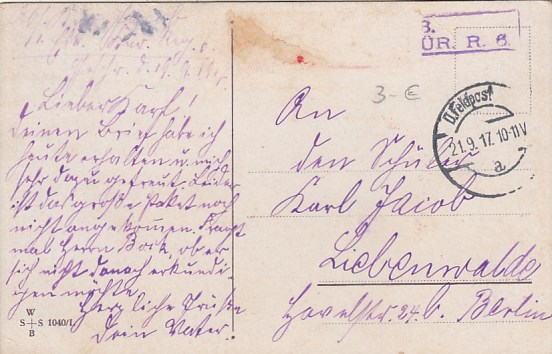 Lieber Karl!
Deinen Brief habe ich
heute erhalten u. mich
sehr dazu gefreut. Leider
ist das große Paket noch
nicht angekommen. Kannst
mal Herrn Bock, ob er
sich nicht danach erkundi-
gen möchte.
Herzliche Grüße
Dein Vater.
W
S S 1040/1
B
3.
ÜR. R. 6.
3-€
D. Feldpost
21.9.17. 10-11V
a
An
den Schüler
Karl Jacob
Liebenwalde
Havelstr. 24. b. Berlin